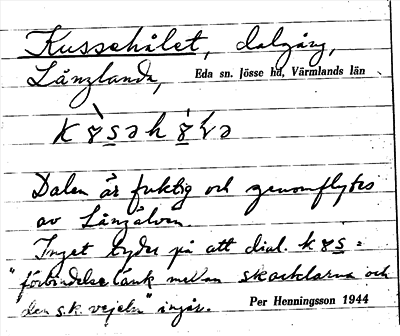 Kussehålet, dalgång,
Långlanda, Eda sn. Jösse hd, Värmlands län
Dalen är fuktig och genomflytes
av Långälven.
Inget tyder på att dial. k8s =
"förbindelselänk mellan skacklarna och
den s.k. vejeln" ingår. Per Henningsson 1944